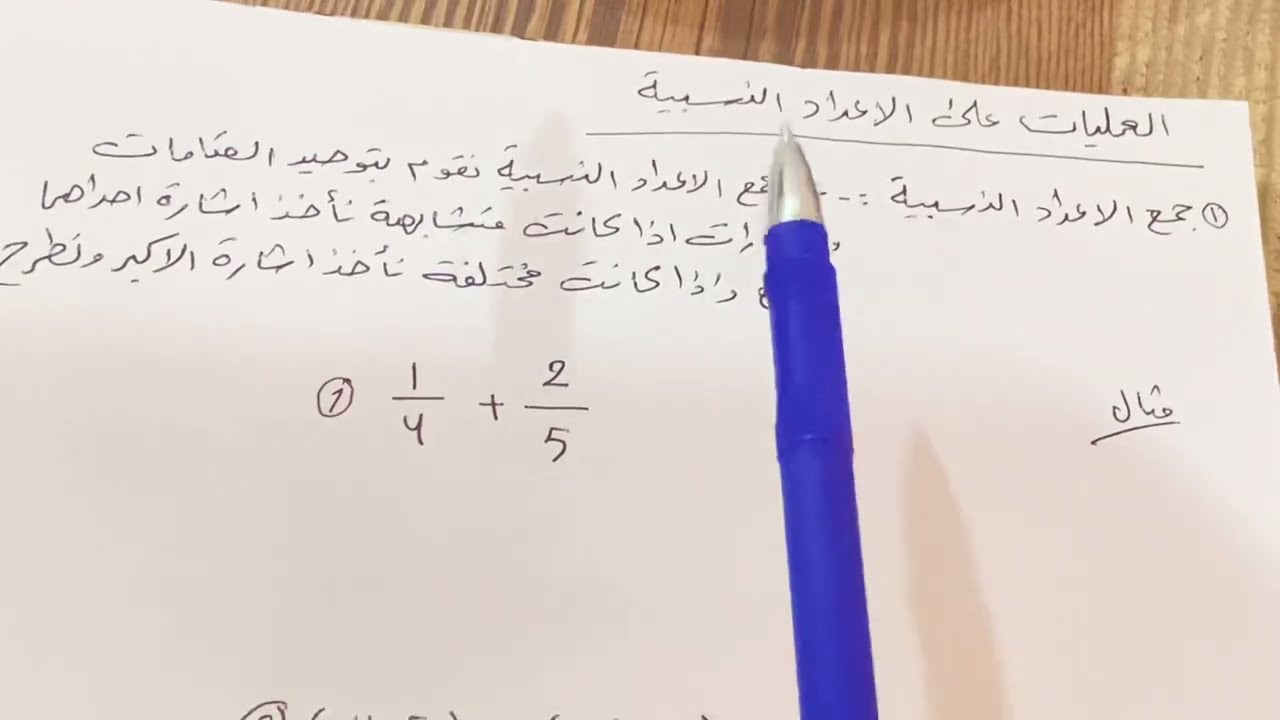 العمليات على الاعداد النسبية
① جمع الاعداد النسبية :- الاعداد النسبية نقوم بتوحيد المقامات
اذا كانت متشابهة نأخذ اشارة احداهما
واذا كانت مختلفة نأخذ اشارة الاكبر ونطرح
مثال
① 1/4 + 2/5